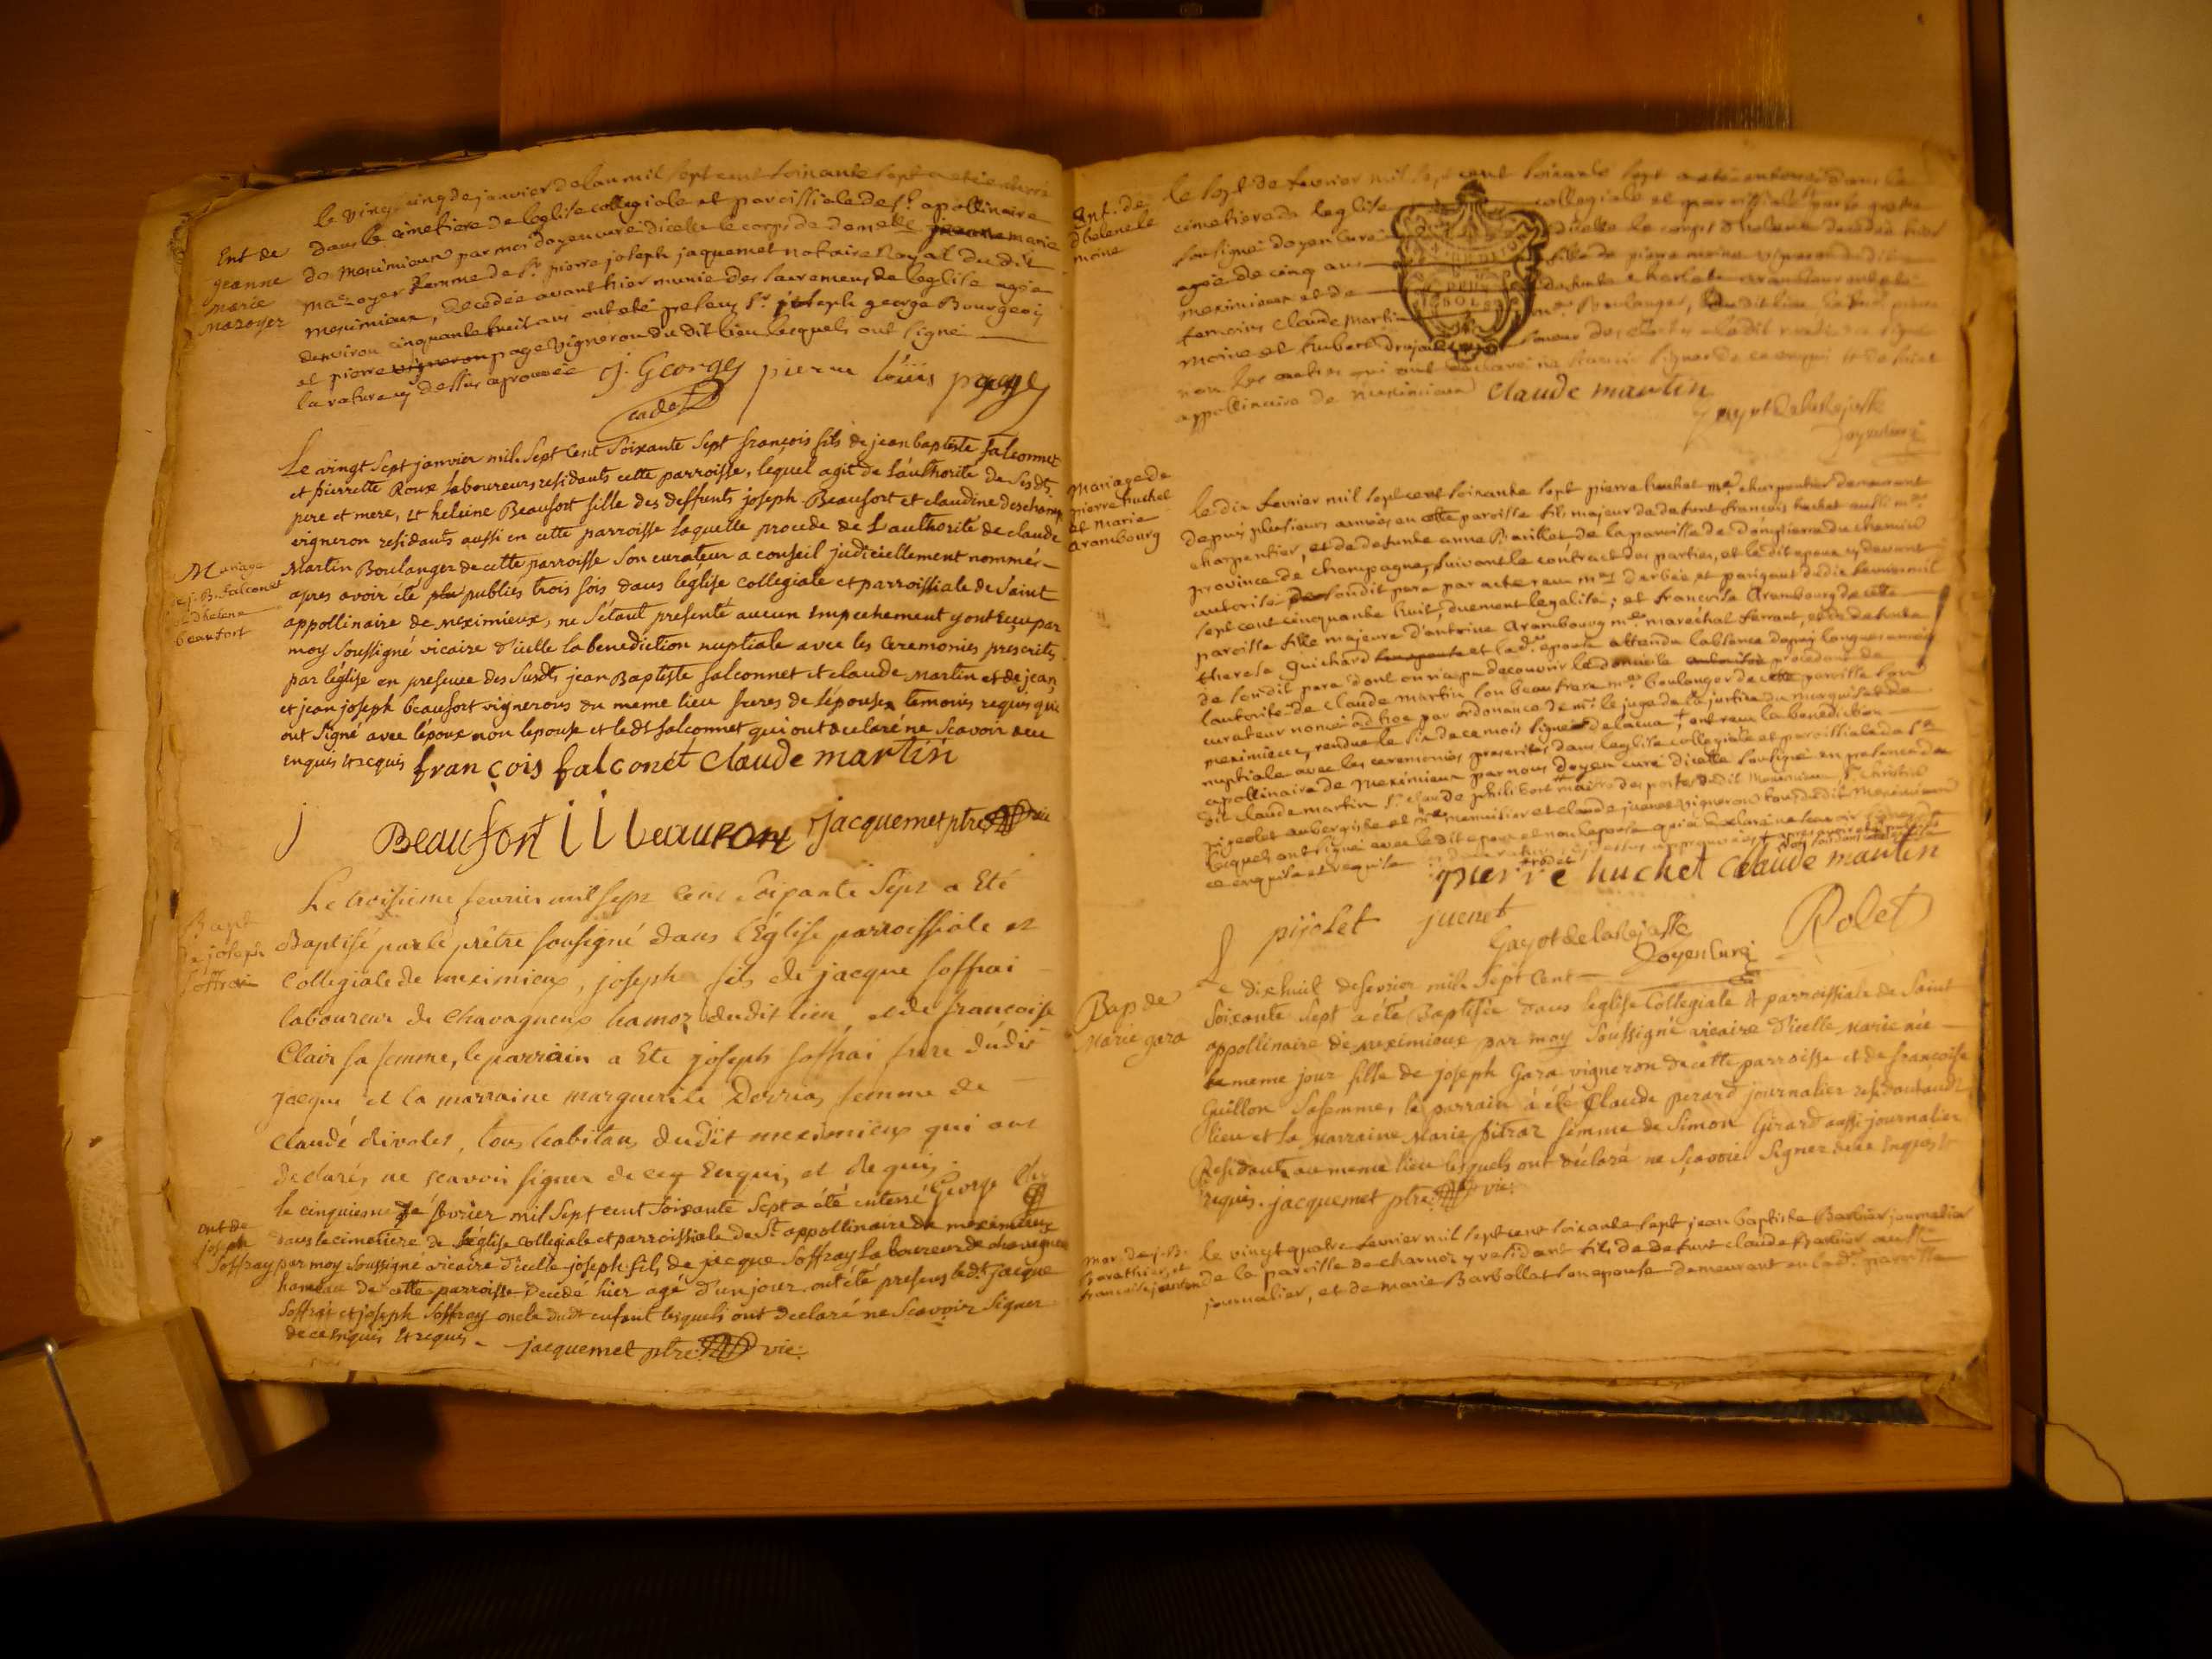 Ent de
jeanne
marie
mazoyer
le vingt cinq de janvier de lan mil sept cent soixante sept a été enterré
dans le cimetiere de leglise collegiale et paroissiale de st. apollinaire
de meximieux par moi doyen curé dicelle le corps de demelle jeanne marie
mazoyer femme de sr. pierre joseph jaquemet notaire Royal du dit
meximieux, decedée avant hier munie des sacremens de leglise agée
denviron cinquante huit ans ont eté presens sr. joseph george Bourgeois
et pierre vigneron page vigneron du dit lieu lesquels ont signé
la rature cy dessus aprouvée j. Georges pierre loüis page
cadet
Mariage
de j. B. falconet
et dhelene
beaufort
Le vingt Sept janvier mil Sept Cent Soixante Sept françois fils de jean baptiste falconnet
et pierrette Roux laboureurs residants cette parroisse, lequel agit de l'authorité de Sesdts
pere et mere, et heleine Beaufort fille des deffunts joseph Beaufort et claudine deschamp
vigneron residants aussi en cette parroisse laquelle procede de L'authorité de claude
Martin Boulanger de cette parroisse Son curateur a conseil judiciellement nommé
apres avoir été plu publiés trois fois dans l'église collegiale et parroissiale de Saint
appollinaire de meximieux, ne s'étant presenté aucun empechement y ont reçu par
moy Soussigné vicaire d'icelle la benediction nuptiale avec les ceremonies prescrites
par l'église en presence des Susdts jean Baptiste falconnet et claude Martin et de jean
et jean joseph beaufort vignerons du meme lieu freres de l'épouse temoins requis qui
ont Signé avec l'époux non lepouse et ledt falconnet qui ont declaré ne Scavoir de ce
enquis et requis françois falconét Claude martin
j Beaufort jacquemet ptre vic
Bapt
de joseph
soffrai
Le troisieme fevrier mil sept cent soixante Sept a Eté
Baptisé par le prêtre sousigné dans l'Église parroissiale et
Collegiale de meximieux, joseph fils de jacque soffrai
laboureur de Chavagneux hamoz dudit lieu et de francoise
Clair sa femme, le parrain a Ete joseph soffrai frere dudit
jacque et la marraine marguerite Derrias femme de
claude rivolet, tous habitans dudit meximieux qui ont
declarés ne scavoir signer de ce Enquis et Requis. George
ent de
joseph
Soffray
le cinquieme de février mil Sept cent Soixante Sept a été enterré
dans le cimetiere de l'église collegiale et parroissiale de St. appollinaire de meximieux
par moy Soussigné vicaire d'icelle joseph fils de jacque Soffray laboureur de chavagneux
hameau de cette parroisse decede hier agé d'un jour, ont été presens ledt jacque
Soffrai et joseph Soffray oncle dudt enfant lesquels ont declaré ne Scavoir Signer
de ce enquis et requis. jacquemet ptre vic:
Ent. de
dhelene le
moine
le sept de fevrier mil sept cent soixante sept a eté enterrée dans le
cimetiere de leglise collegiale et paroissiale
sousigné doyen curé dicelle le corps dhelene decedée hier
agée de cinq ans fille de pierre moine vigneron dudit
meximieux et de defunte
temoins Claude Martin Boulanger, dudit lieu
moine et hubert
non les autres qui ont declaré ne scavoir signer de ce enquis et de saint
appollinaire de meximieux Claude martin
gayot de la Rejasse
doyen curé
Mariage de
pierre huchet
et marie
arambourg
le dix fevrier mil sept cent soixante sept pierre huchet me. charpentier demeurant
depuis plusieurs années en cette paroisse fils majeur de defunt francois huchet aussi me.
charpentier, et de defunte anne Barillot de la paroisse de dompierre du chemin
province de champagne, suivant le contract des parties, et le dit epoux cy devant
autorisé de son dit pere par acte reçu mes derbée et parigaut du dix fevrier mil
sept cent cinquante huit, duement legalisé; et francoise Arambourg de cette
paroisse fille majeure d'antoine Arambourg me. marechal ferrant, et de defunte
therese Guichard et ladte epouse attendu labsence depuis longues années
de son dit pere dont on n'a pu decouvrir le domicile procedant de
lautorité de Claude martin son beau frere me. boulanger de cette paroisse son
curateur nommé ad hoc par ordonance de mr. le juge de la justice du marquisat de
meximieux, rendue le six de ce mois signée delacua, ont reçu la benediction
nuptiale avec les ceremonies prescrites dans leglise collegiale et paroissiale de st
apollinaire de meximieux par nous doyen curé dicelle sousigné en presence du
dit claude martin sr. claude philibert maitre des postes dudit meximieux, sr.
pigeolet aubergiste et me. menuisier et claude juenet vigneron tous dudit Meximieux
lesquels ont signé avec le dit epoux et non lepouse qui a declaré ne scavoir signer
de ce enquise et requise
rodet pierre huchet Claude martin
pirolet juenet Rolet
Gayot de la Rejasse
Doyen Curé
Bap de
Marie gara
Le dixhuit de fevrier mil Sept Cent
Soixante Sept a été Baptisée dans l'eglise Collegiale et parroissiale de Saint
appollinaire de meximieux par moy Soussigné vicaire d'icelle marie née
le meme jour fille de joseph Gara vigneron de cette parroisse et de françoise
Guillon Sa femme, le parrain a été Claude perard journalier residant audt
lieu et la Marraine Marie pitrat femme de Simon Girard aussi journalier
Residants au meme lieu lesquels ont déclaré ne Sçavoir Signer de ce enquis et
requis. jacquemet ptre vic:
mar. de j. B.
barathier, et
francoise
le vingt quatre fevrier mil sept cent soixante sept jean baptiste Barbier journalier
de la paroisse de charnoz y residant fils de defunt claude Barbier aussi
journalier, et de marie Barbollat son epouse demeurant en ladte paroisse